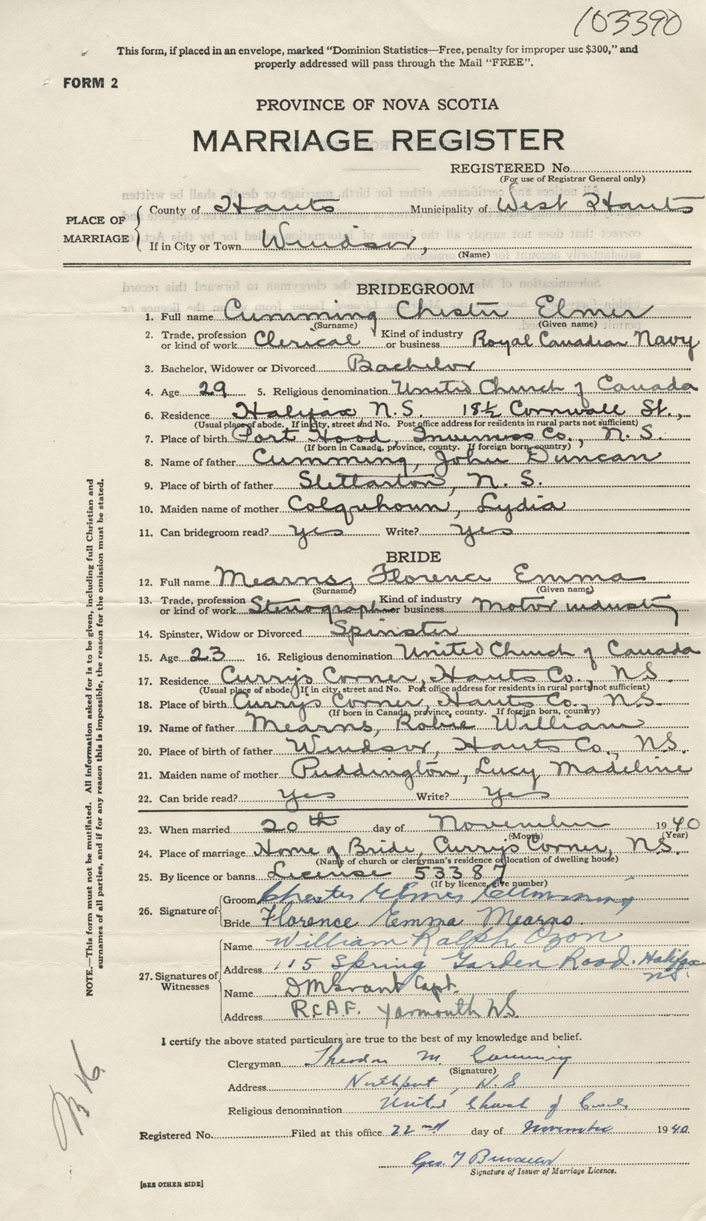 103390
This form, if placed in an envelope, marked "Dominion Statistics—Free, penalty for improper use $300," and
properly addressed will pass through the Mail "FREE".
FORM 2
PROVINCE OF NOVA SCOTIA
MARRIAGE REGISTER
REGISTERED No.
(For use of Registrar General only)
PLACE OF MARRIAGE
County of Hants Municipality of West Hants
If in City or Town Windsor,
(Name)
BRIDEGROOM
1. Full name Cumming Chester Elmer
(Surname) (Given name)
2. Trade, profession or kind of work Clerical Kind of industry or business Royal Canadian Navy
3. Bachelor, Widower or Divorced Bachelor
4. Age 29 5. Religious denomination United Church of Canada
6. Residence Halifax N.S. 18½ Cornwall St.,
(Usual place of abode. If in city, street and No. Post office address for residents in rural parts not sufficient)
7. Place of birth Port Hood, Inverness Co., N.S.
(If born in Canada, province, county. If foreign born, country)
8. Name of father Cumming, John Duncan
9. Place of birth of father Stellarton, N.S.
10. Maiden name of mother Colquhoun, Lydia
11. Can bridegroom read? yes Write? yes
BRIDE
12. Full name Mearns, Florence Emma
(Surname) (Given name)
13. Trade, profession or kind of work Stenographer Kind of industry or business Motor industry
14. Spinster, Widow or Divorced Spinster
15. Age 23 16. Religious denomination United Church of Canada
17. Residence Currys Corner, Hants Co., N.S.
(Usual place of abode. If in city, street and No. Post office address for residents in rural parts not sufficient)
18. Place of birth Currys Corner, Hants Co., N.S.
(If born in Canada, province, county. If foreign born, country)
19. Name of father Mearns, William
20. Place of birth of father Windsor, Hants Co., N.S.
21. Maiden name of mother Puddington, Lucy Madeline
22. Can bride read? yes Write? yes
23. When married 20th day of November 1940
(Month) (Year)
24. Place of marriage Home of Bride, Currys Corner, N.S.
(Name of church or clergyman's residence or location of dwelling house)
25. By licence or banns License 53387
(If by licence give number)
26. Signature of Groom Chester Elmer Cumming
Bride Florence Emma Mearns.
27. Signatures of Witnesses
Name William Ralph
Address 115 Spring Garden Road. Halifax N.S.
Name D M Grant Capt.
Address R.C.A.F. Yarmouth N.S.
I certify the above stated particulars are true to the best of my knowledge and belief.
Clergyman Theodore M. Cumming
(Signature)
Address Northport, N.S
Religious denomination United Church of
Registered No. Filed at this office 22nd day of November 1940.
Geo.
Signature of Issuer of Marriage Licence.
[SEE OTHER SIDE]
NOTE.—This form must not be mutilated. All information asked for is to be given, including full Christian and
surnames of all parties, and if for any reason this is impossible, the reason for the omission must be stated.